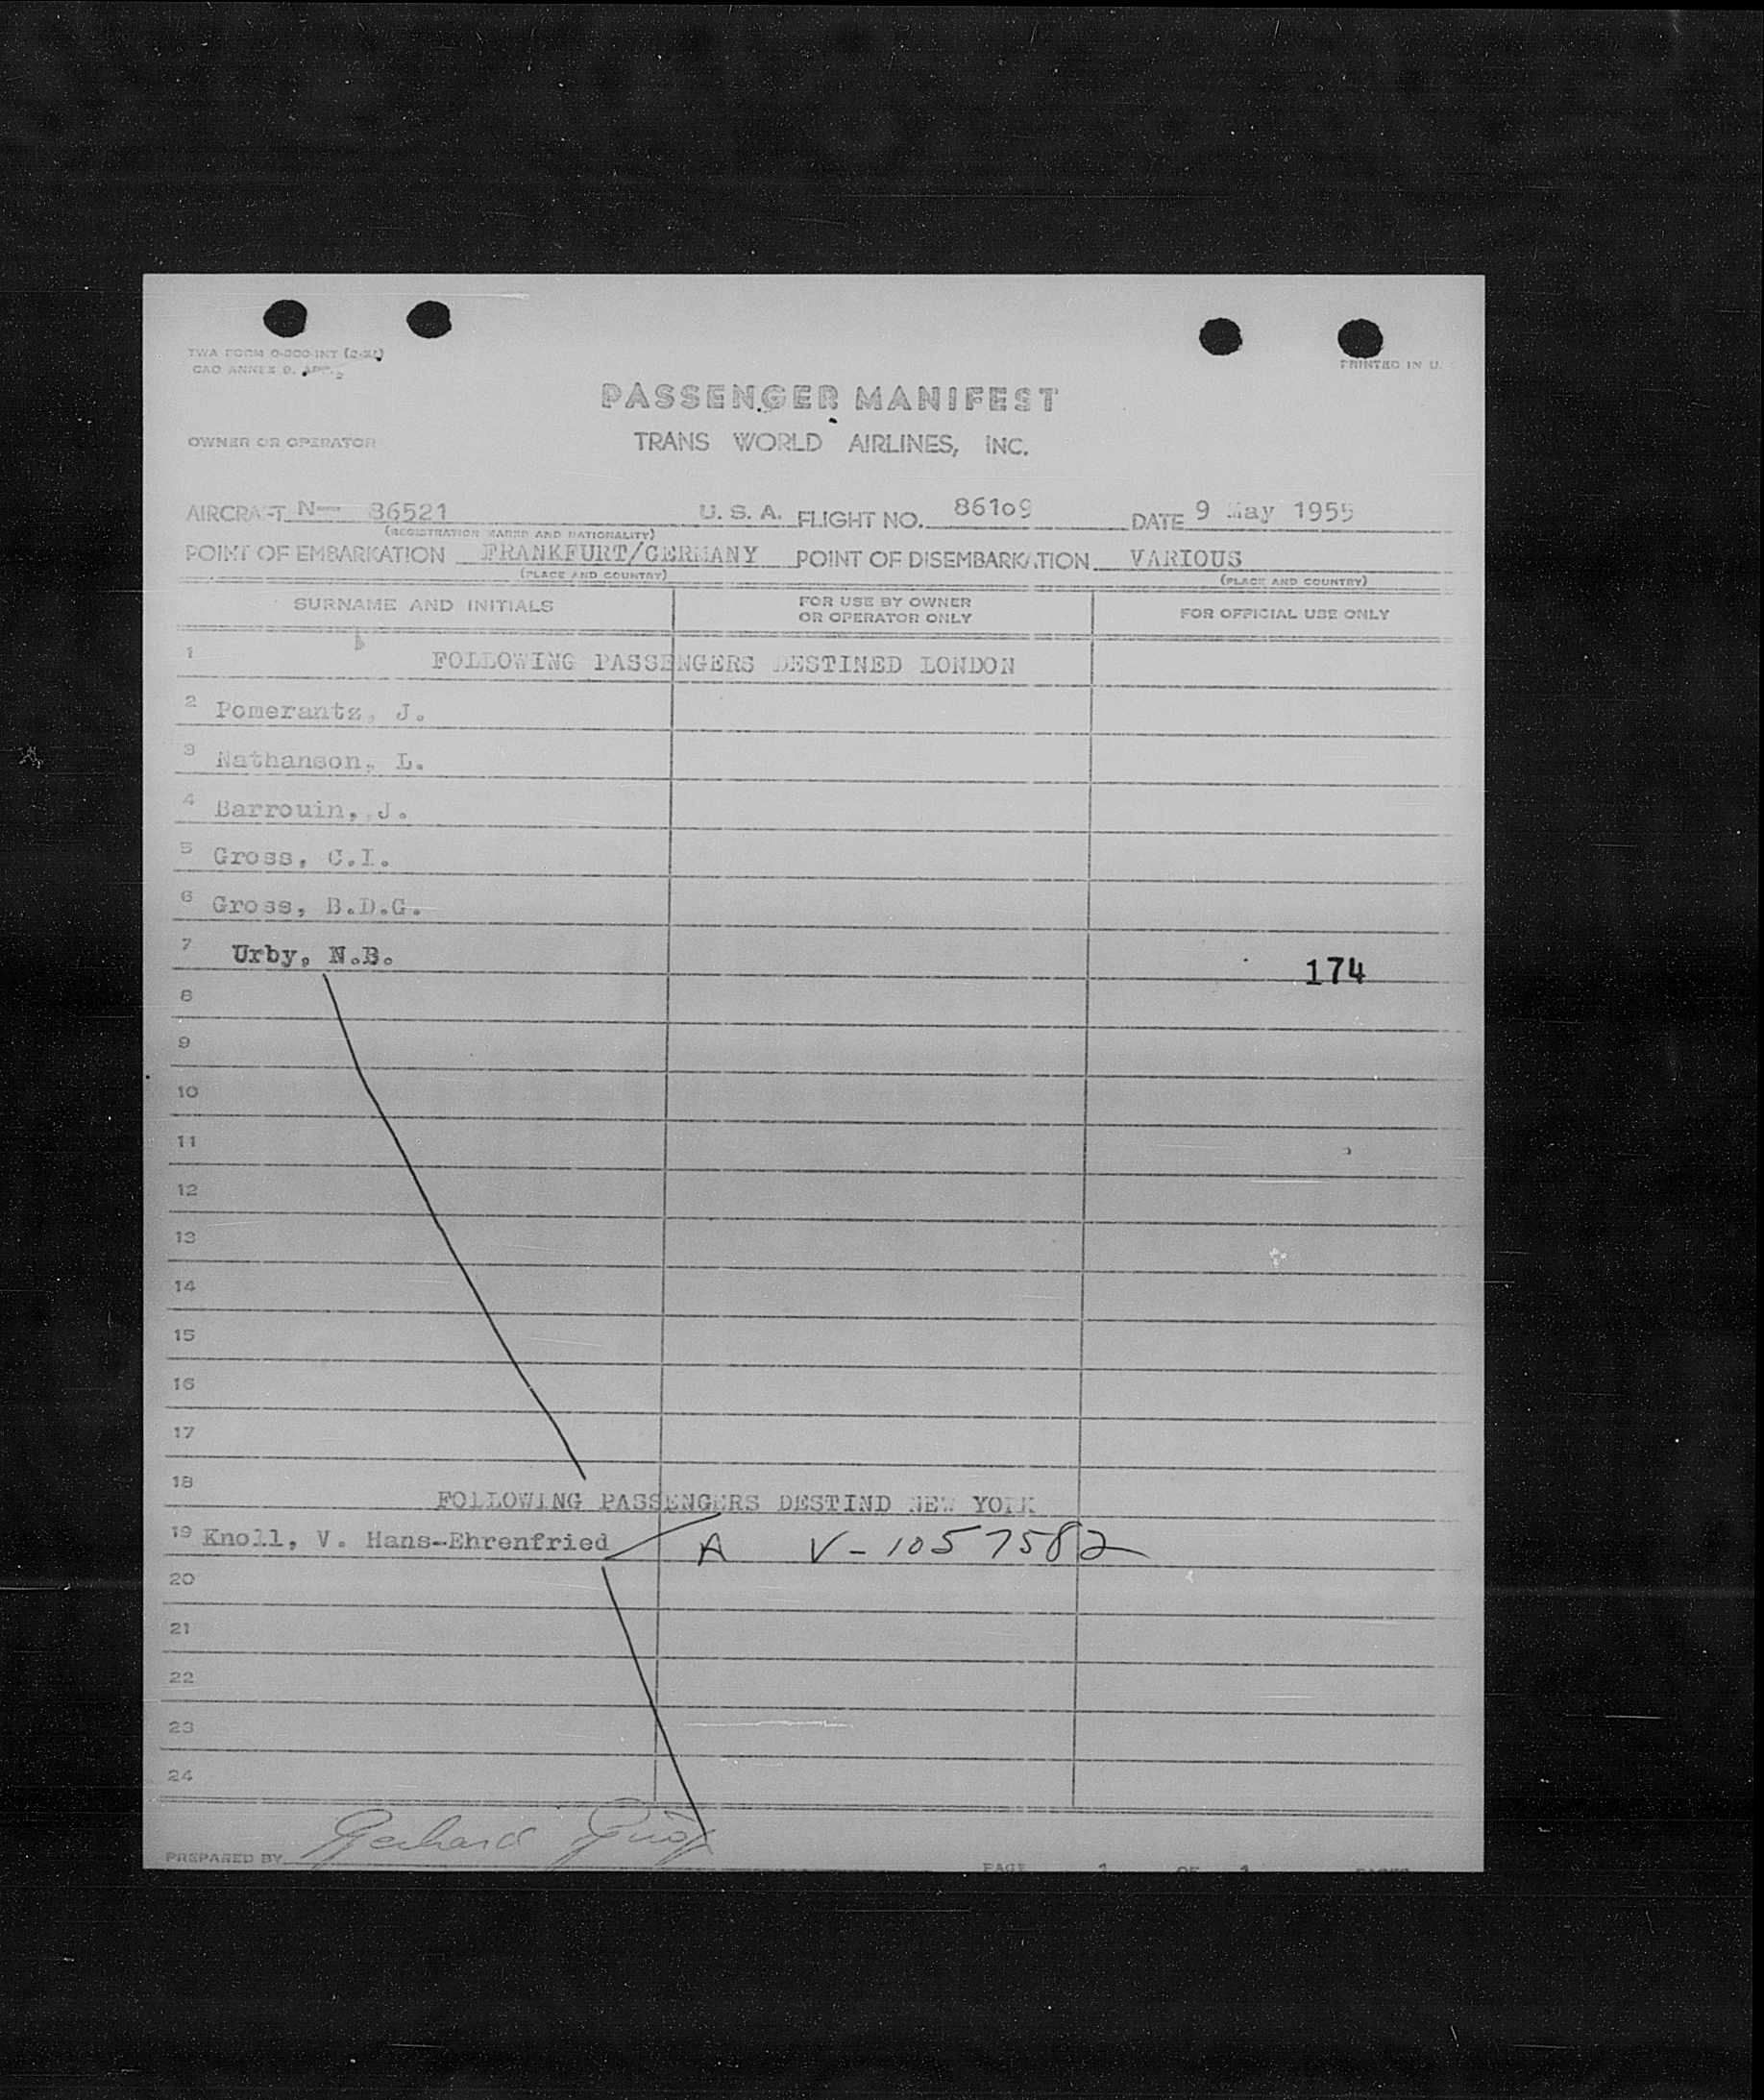 TWA FORM
CAO ANNEX 9, APP. 2
PRINTED IN U.
PASSENGER MANIFEST
OWNER OR OPERATOR
TRANS WORLD AIRLINES, INC.
AIRCRAFT N— 86521 U. S. A. FLIGHT NO. 86109 DATE 9 May 1955
(REGISTRATION MARKS AND NATIONALITY)
POINT OF EMBARKATION FRANKFURT/GERMANY POINT OF DISEMBARKATION VARIOUS
(PLACE AND COUNTRY) (PLACE AND COUNTRY)
SURNAME AND INITIALS
FOR USE BY OWNER
OR OPERATOR ONLY
FOR OFFICIAL USE ONLY
1 FOLLOWING PASSENGERS DESTINED LONDON
2 Pomerantz, J.
3 Nathanson, L.
4 Barrouin, J.
5 Gross, C.I.
6 Gross, B.D.G.
7 Urby, N.B. 174
8
9
10
11
12
13
14
15
16
17
18 FOLLOWING PASSENGERS DESTIND NEW YORK
19 Knoll, V. Hans-Ehrenfried A V-1057582
20
21
22
23
24
PREPARED BY Gerhard
PAGE 1 OF 1 PAGES